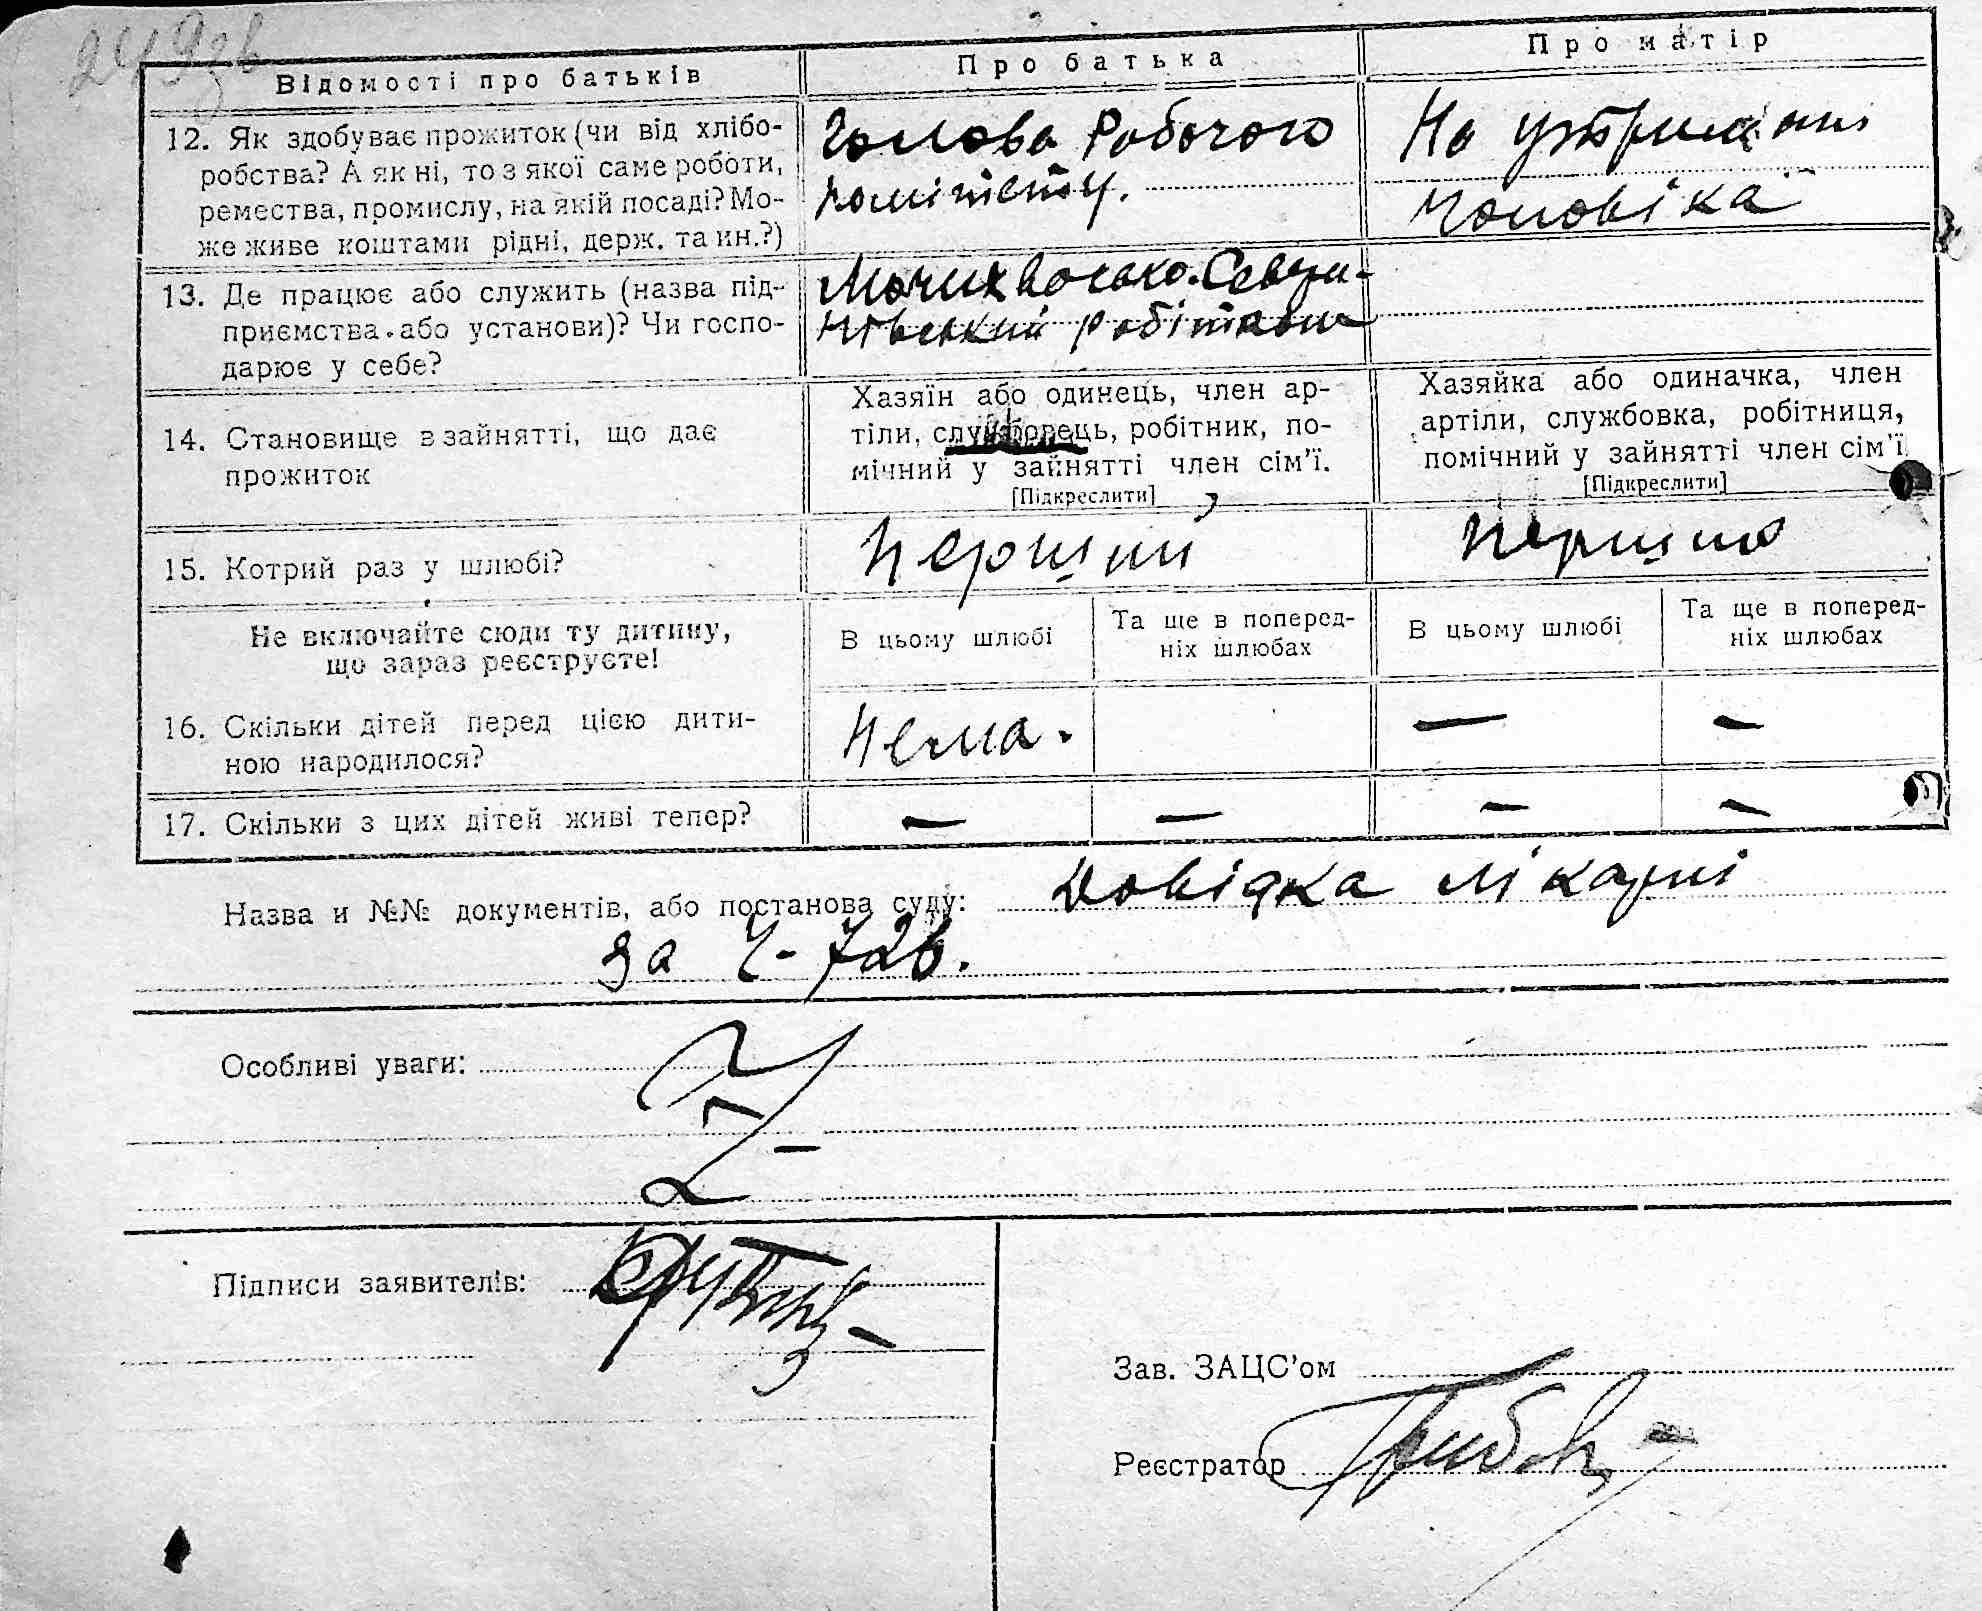 249зв
Відомості про батьків
Про батька
Про матір
12. Як здобуває прожиток (чи від хлібо-
робства? А як ні, то з якої саме роботи,
ремества, промислу, на якій посаді? Мо-
же живе коштами рідні, держ. та ин.?)
Голова Робочого
комітету.
На утриманні
чоловіка
13. Де працює або служить (назва під-
приємства або установи)? Чи госпо-
дарює у себе?
14. Становище в зайнятті, що дає
прожиток
Хазяїн або одинець, член ар-
тіли, службовець, робітник, по-
мічний у зайнятті член сім'ї.
[Підкреслити]
Хазяйка або одиначка, член
артіли, службовка, робітниця,
помічний у зайнятті член сім'ї
[Підкреслити]
15. Котрий раз у шлюбі?
Перший
Не включайте сюди ту дитину,
що зараз реєструєте!
В цьому шлюбі
Та ще в поперед-
ніх шлюбах
В цьому шлюбі
Та ще в поперед-
ніх шлюбах
16. Скільки дітей перед цією дити-
ною народилося?
Нема.
—
—
17. Скільки з цих дітей живі тепер?
—
—
—
—
Назва и №№ документів, або постанова суду: Довідка лікарні
за Ч-726.
Особливі уваги:
Підписи заявителів:
Зав. ЗАЦС'ом
Реєстратор